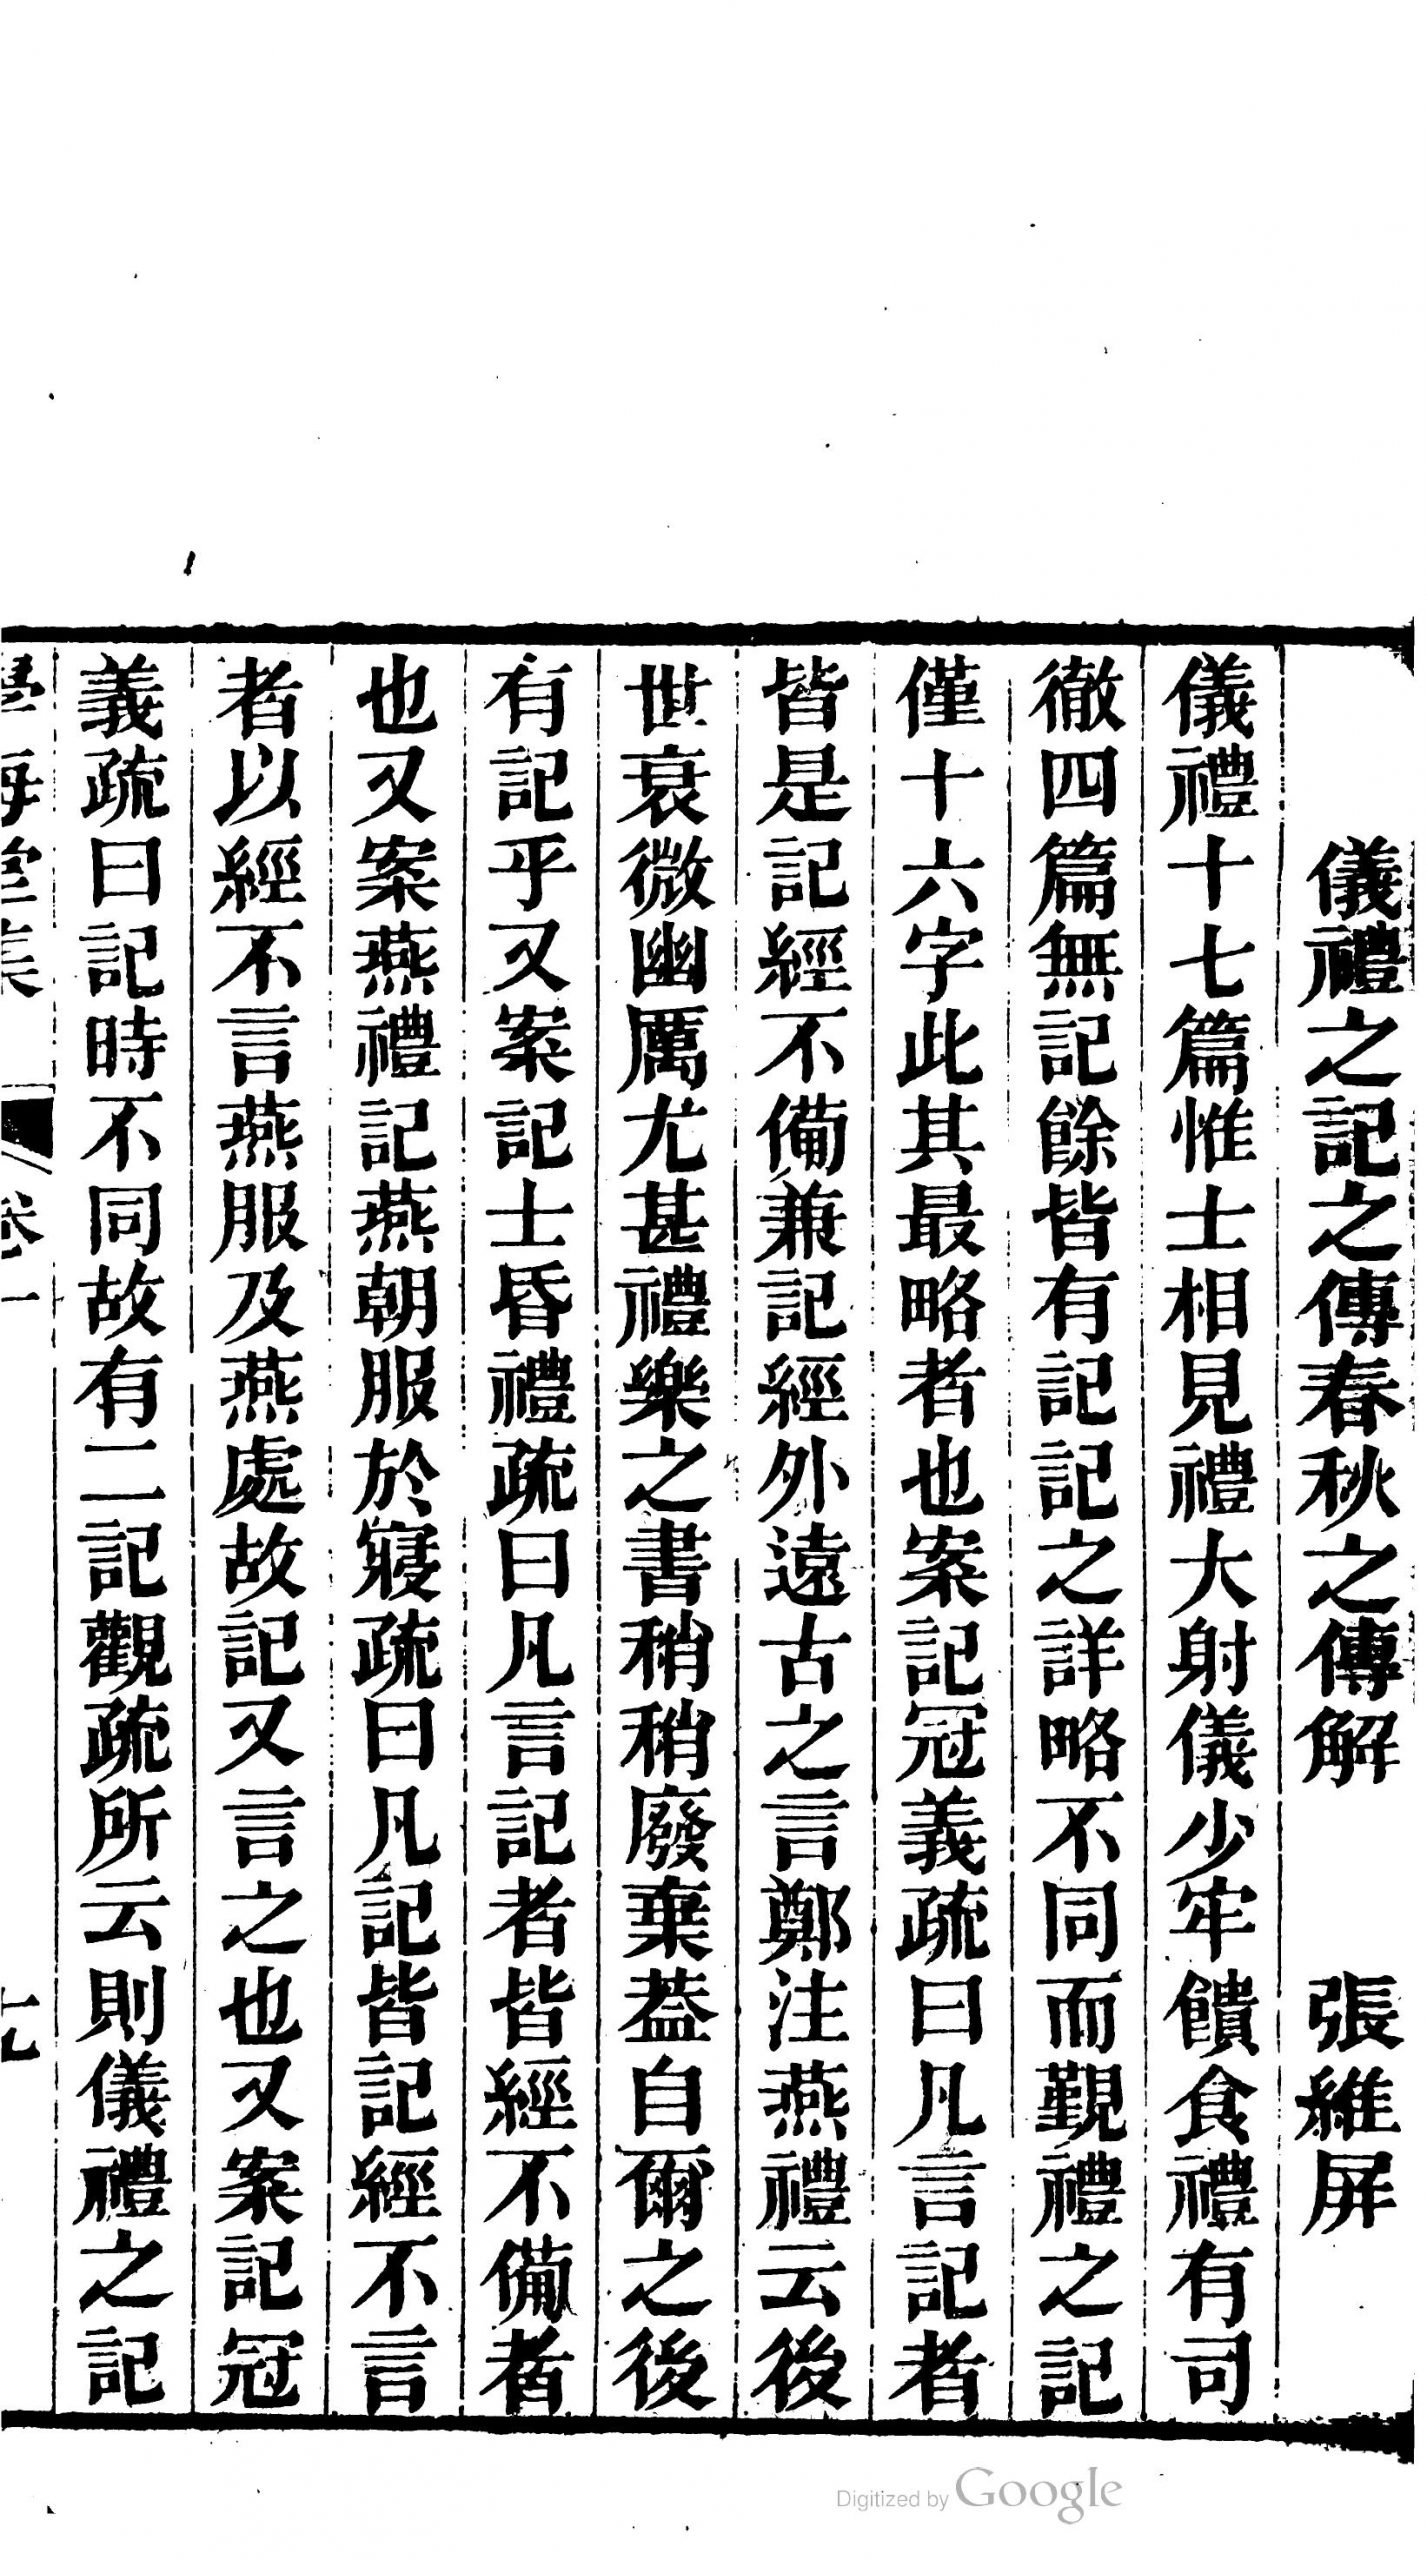 儀禮之記之傳春秋之傳解 張維屏
儀禮十七篇惟士相見禮大射儀少牢饋食禮有司
徹四篇無記餘皆有記記之詳略不同而覲禮之記
僅十六字此其最略者也案記冠義疏曰凡言記者
皆是記經不備兼記經外遠古之言鄭注燕禮云後
世衰微幽厲尤甚禮樂之書稍稍廢棄葢自爾之後
有記乎又案記士昏禮疏曰凡言記者皆經不備者
也又案燕禮記燕朝服於寢疏曰凡記皆記經不言
者以經不言燕服及燕處故記又言之也又案記冠
義疏曰記時不同故有二記觀疏所云則儀禮之記
學海堂集 卷一
Digitized by Google